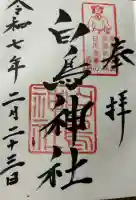 奉拝
白鳥神社
令和七年二月二十三日